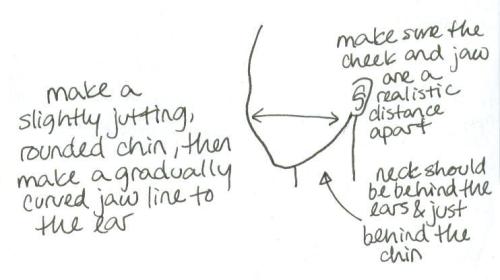 make a
slightly jutting,
rounded chin, then
make a gradually
curved jaw line to
the ear
make sure the
cheek and jaw
are a
realistic
distance
apart
neck should
be behind the
ears & just
behind the
chin